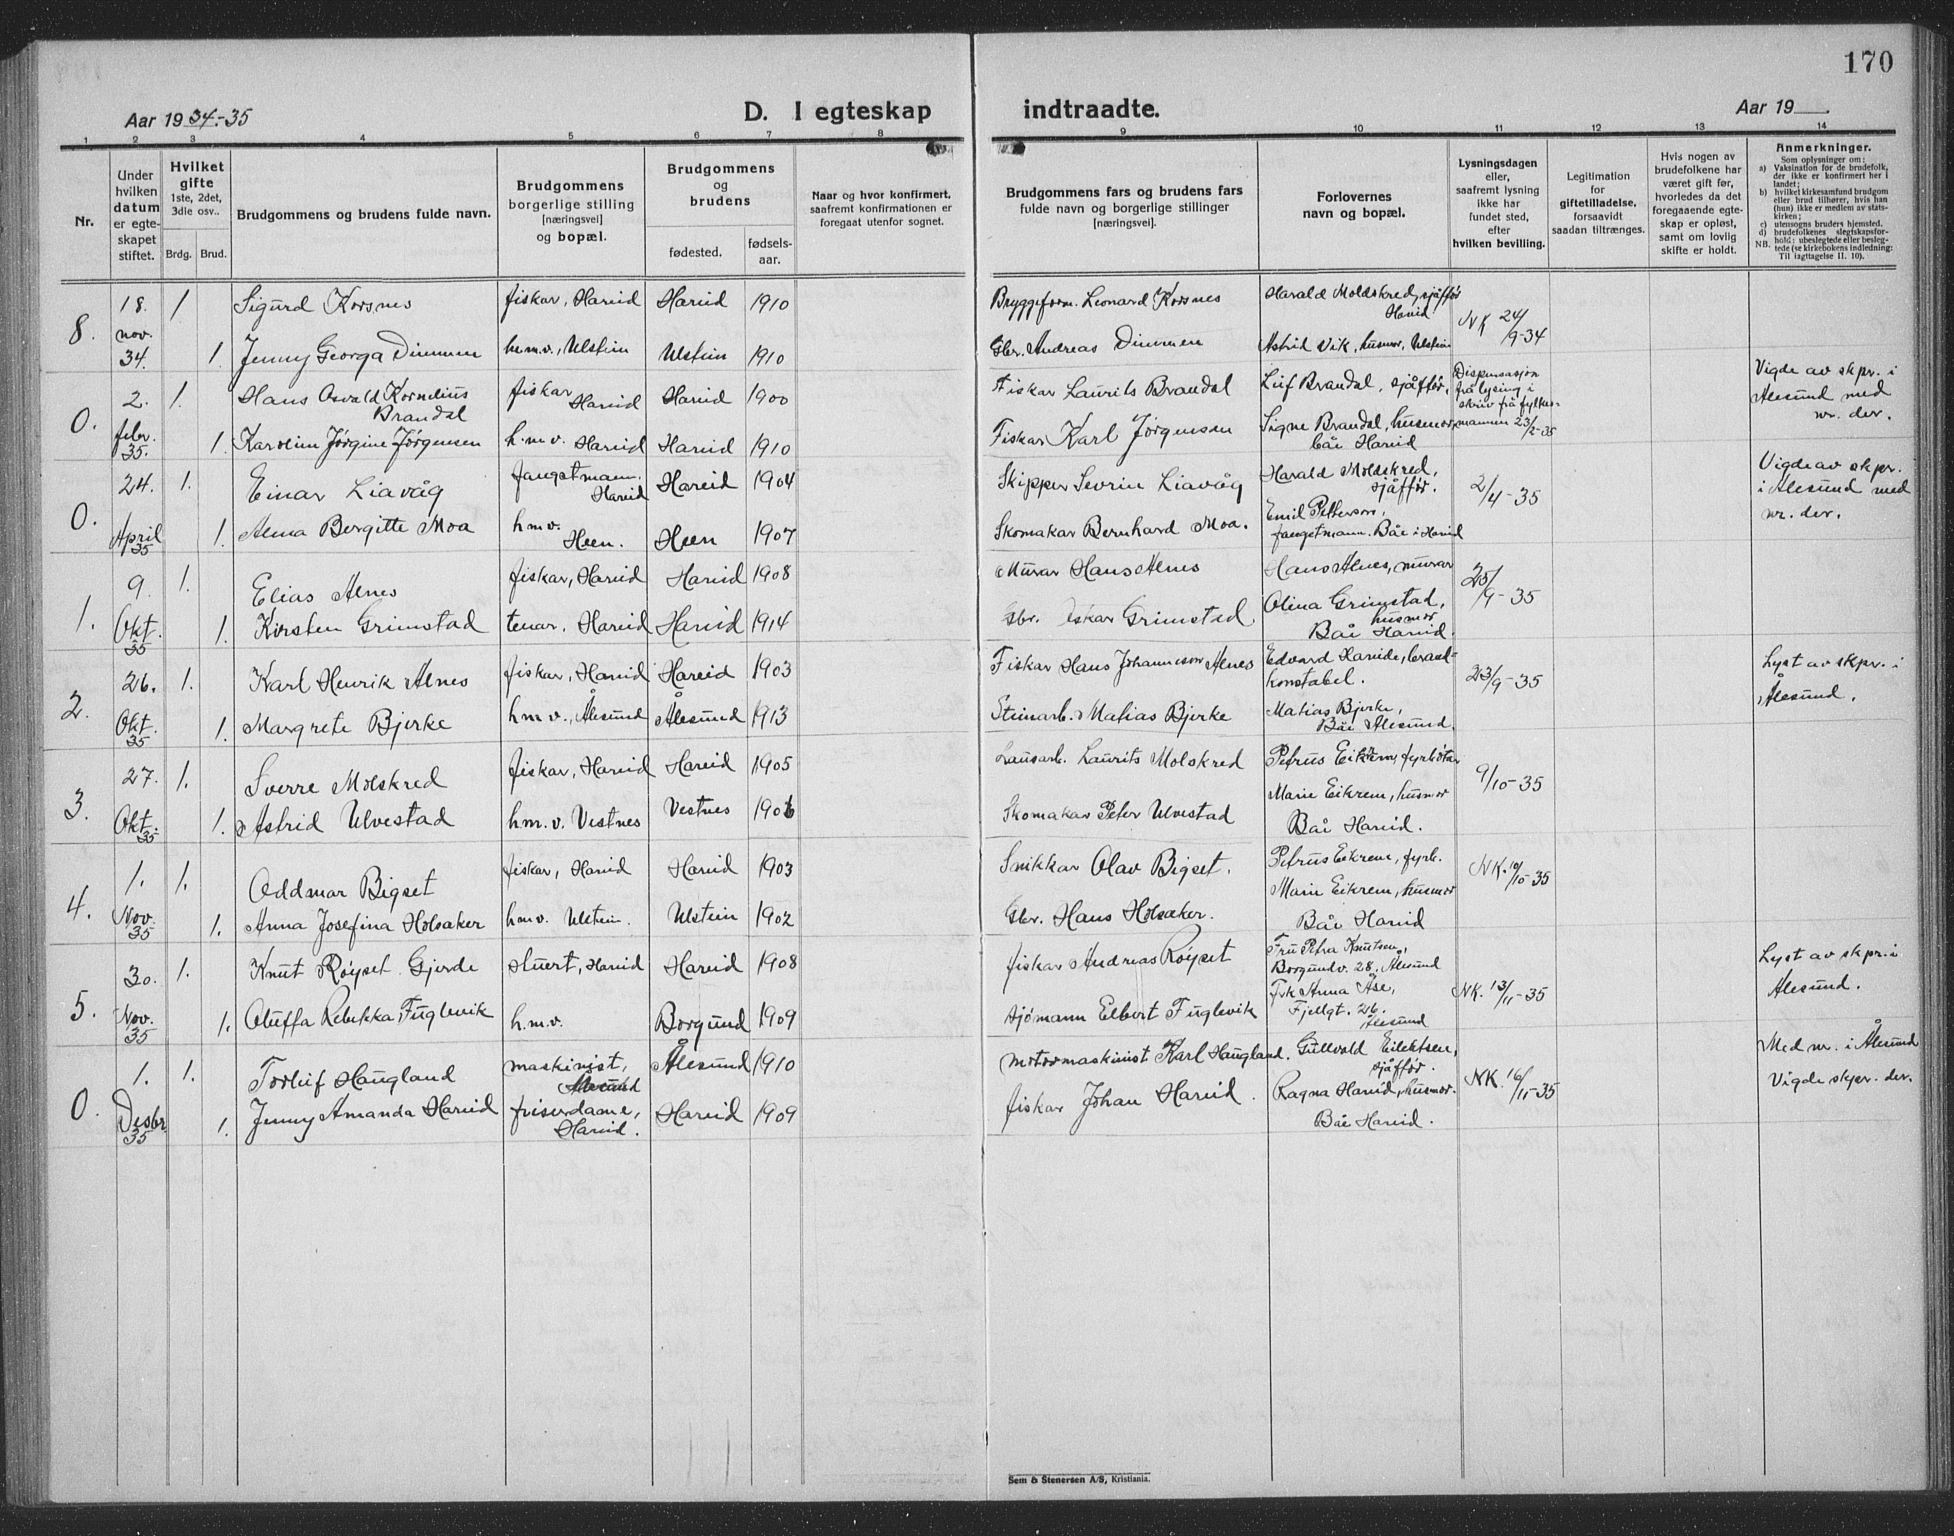 170
Aar 1934-35
D. I egteskap indtraadte.
Aar 19
1 2 3 4 5 6 7 8 9 10 11 12 13 14
Nr.
Under hvilken datum er egteskapet stiftet.
Hvilket gifte
1ste, 2det, 3die osv..
Brdg. Brud.
Brudgommens og brudens fulde navn.
Brudgommens borgerlige stilling [næringsvei] og bopæl.
Brudgommens og brudens
fødested.
fødselsaar.
Naar og hvor konfirmert, saafremt konfirmationen er foregaat utenfor sognet.
Brudgommens fars og brudens fars fulde navn og borgerlige stillinger [næringsvei].
Forlovernes navn og bopæl.
Lysningsdagen eller, saafremt lysning ikke har fundet sted, efter hvilken bevilling.
Legitimation for giftetilladelse, forsaavidt saadan tiltrænges.
Hvis nogen av brudefolkene har været gift før, hvorledes da det foregaaende egteskap er opløst, samt om lovlig skifte er holdt.
Anmerkninger.
Som oplysninger om:
a) Vaksination for de brudefolk, der ikke er konfirmert her i landet;
b) hvilket kirkesamfund brudgom eller brud tilhører, hvis han (hun) ikke er medlem av statskirken;
c) utensogns bruders hjemsted.
d) brudefolkenes slegtskapsforhold: ubeslegtede eller beslegtede (se kirkebokens indledning:
NB. Til iagttagelse II. 10).
8. 18. nov. 34. 1. Sigurd Korsnes fiskar, Hareid Hareid 1910 Bryggeform. Leonard Korsnes Harald Moldskred, sjåffør Hareid NK 24/9-34
1. Jenny Georga Dimmen h.m.v., Ulstein Ulstein 1910 Gbr. Andreas Dimmen Astrid Vik, husmor, Ulstein
0. 2. febr. 35. 1. Hans Osvald Kornelius Brandal fiskar Hareid Hareid 1900 Fiskar Laurits Brandal Leif Brandal, sjåffør, Dispensasjon frå lysing i skriv frå fylkesmannen 23/2-35 Vigde av skpr. i Ålesund med nr. der.
1. Karolin Jørgine Jørgensen h.m.v. Hareid Hareid 1910 Fiskar Karl Jørgensen Signe Brandal, husmor, båe Hareid
0. 24. April 35 1. Einar Liavåg fangstmann. Hareid Hareid 1904 Skipper Sevrin Liavåg Harald Moldskred, sjåffør. 2/4-35 Vigde av skpr. i Ålesund med nr. der.
1. Alma Bergitte Moa h.m.v. Heen. Heen 1907 Skomakar Bernhard Moa. Emil Pettersen, fangstmann. Båe i Hareid
1. 9. Okt. 35 1. Elias Alnes fiskar, Hareid Hareid 1908 Murar Hans Alnes Hans Alnes, murar 25/9-35
1. Kirsten Grimstad tenar, Hareid Hareid 1914 Gbr. Oskar Grimstad. Olina Grimstad, husmor Båe Hareid.
2. 26. Okt. 35 1. Karl Henrik Alnes fiskar, Hareid Hareid 1903 Fiskar Hans Johannesen Alnes Edvard Hareide, brandkonstabel. 23/9-35 Lyst av skpr. i Ålesund.
1. Margrete Bjerke h.m.v., Ålesund Ålesund 1913 Steinarb. Matias Bjerke Matias Bjerke, Båe Ålesund.
3. 27. Okt. 35. 1. Sverre Molskred fiskar, Hareid Hareid 1905 Lausarb. Laurits Molskred Petrus Eikrem, fyrbøtar 9/10-35
1. Astrid Ulvestad h.m.v. Vestnes Vestnes 1906 Skomakar Peter Ulvestad Marie Eikrem, husmor Båe Hareid.
4. 1. Nov. 35 1. Oddmar Bigset fiskar, Hareid Hareid 1903 Snikkar Olav Bigset. Petrus Eikrem, fyrb. NK. 10/10-35
1. Anna Josefina Holsaker h.m.v. Ulstein. Ulstein 1902 Gbr. Hans Holsaker. Marie Eikrem, husmor Båe Hareid
5. 30. Nov. 35 1. Knut Røyset Gjerde stuert, Hareid Hareid 1908 fiskar Andreas Røyset Fru Petra Knutsen, Borgundv. 28, Ålesund NK. 13/11-35 Lyst av skpr. i Ålesund.
1. Oluffa Rebekka Fuglevik h.m.v. Borgund 1909 sjømann Elbert Fuglevik Frk Anna Åse, Fjellgt. 26. Ålesund
0. 1. Desbr. 35 1. Torleif Haugland maskinist, Ålesund Ålesund 1910 motormaskinist Karl Haugland. Gullvald Eilertsen, sjåffør. NK. 16/11-35 Med nr. i Ålesund Vigde skpr. der.
1. Jenny Amanda Hareid friserdame, Hareid. Hareid 1909 fiskar Johan Hareid. Ragna Hareid, husmor. Båe Hareid.
Sem & Stenersen A/S, Kristiania.